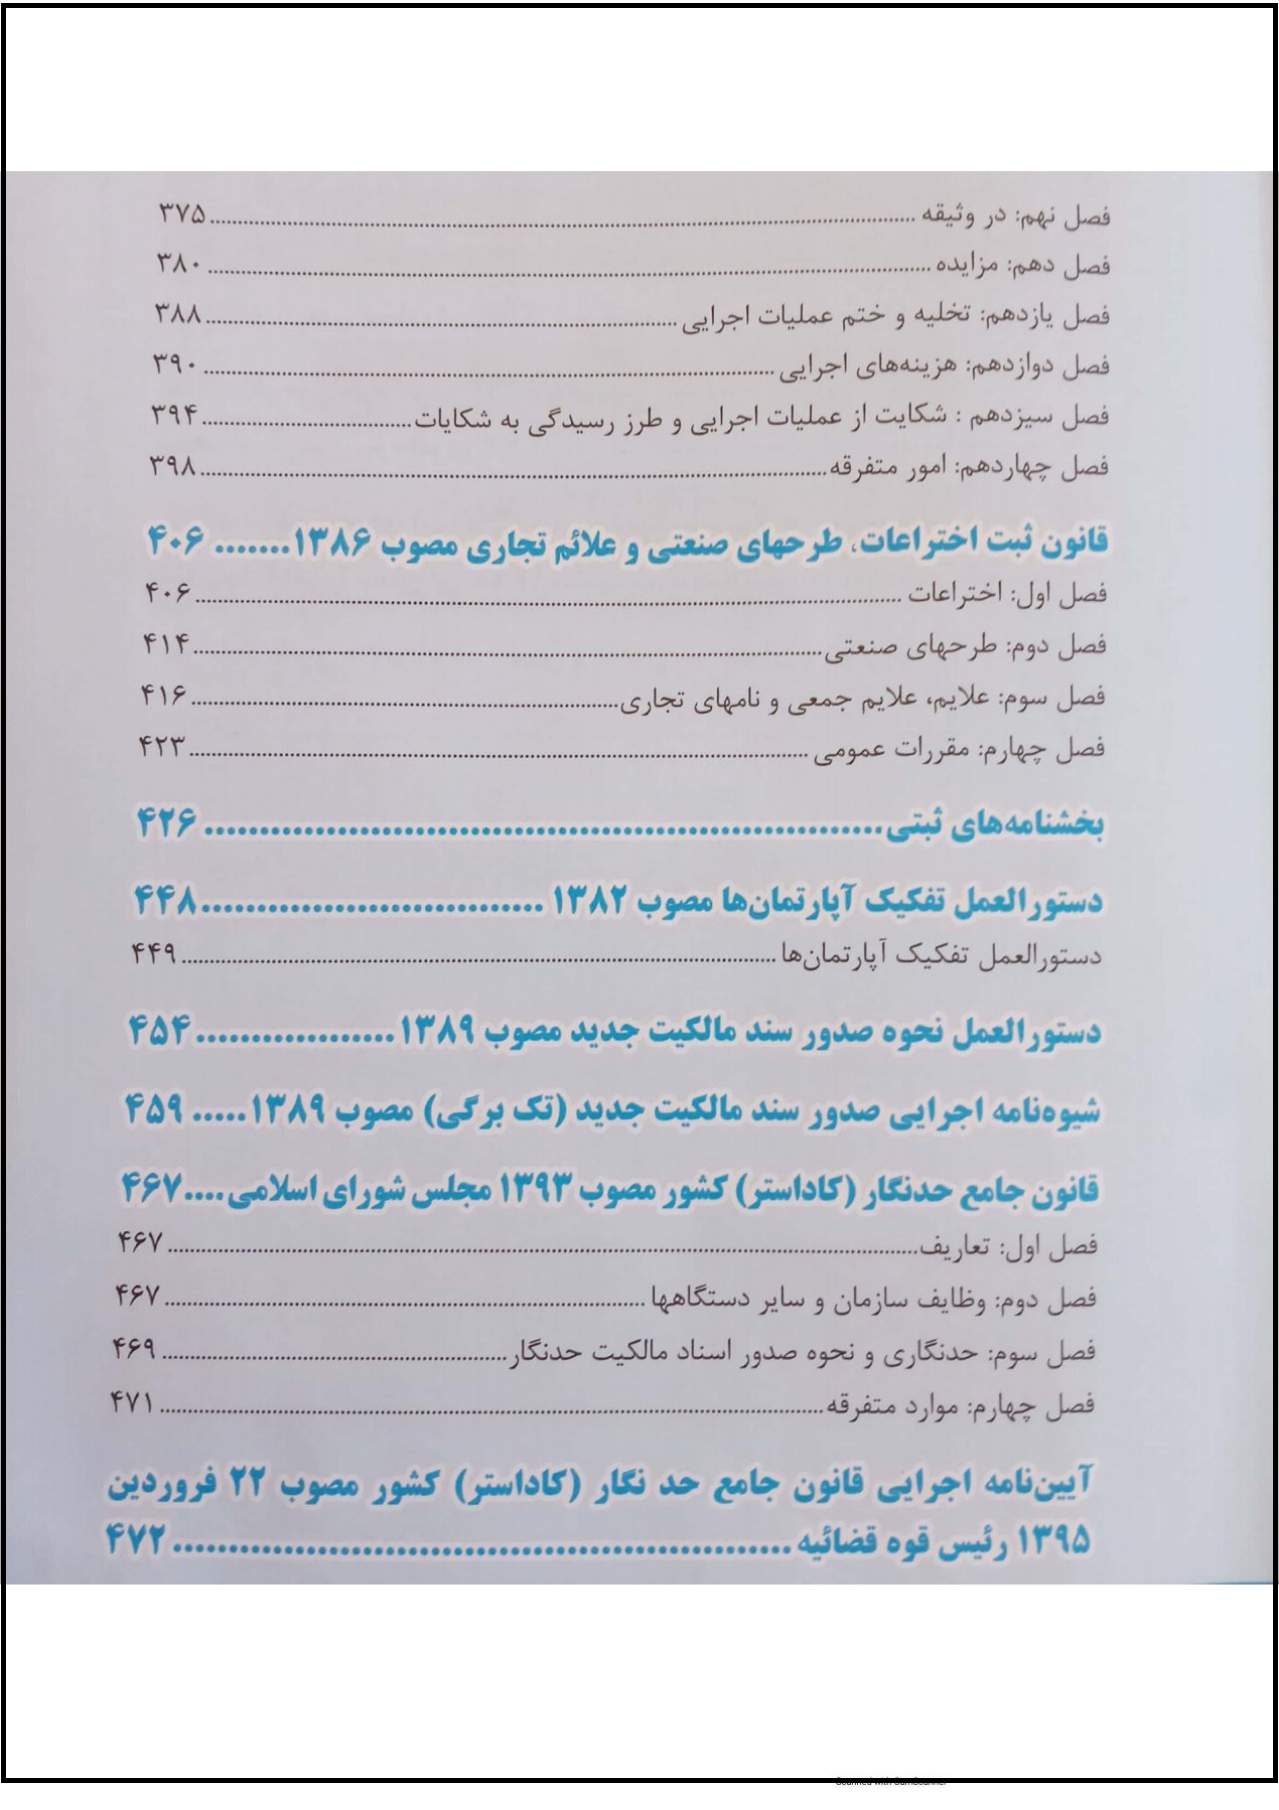 فصل نهم: در وثیقه ..... ۳۷۵
فصل دهم: مزایده ..... ۳۸۰
فصل یازدهم: تخلیه و ختم عملیات اجرایی ..... ۳۸۸
فصل دوازدهم: هزینه‌های اجرایی ..... ۳۹۰
فصل سیزدهم : شکایت از عملیات اجرایی و طرز رسیدگی به شکایات ..... ۳۹۴
فصل چهاردهم: امور متفرقه ..... ۳۹۸
قانون ثبت اختراعات، طرحهای صنعتی و علائم تجاری مصوب ۱۳۸۶ ....... ۴۰۶
فصل اول: اختراعات ..... ۴۰۶
فصل دوم: طرحهای صنعتی ..... ۴۱۴
فصل سوم: علایم، علایم جمعی و نامهای تجاری ..... ۴۱۶
فصل چهارم: مقررات عمومی ..... ۴۲۳
بخشنامه‌های ثبتی ..... ۴۲۶
دستورالعمل تفکیک آپارتمان‌ها مصوب ۱۳۸۲ ..... ۴۴۸
دستورالعمل تفکیک آپارتمان‌ها ..... ۴۴۹
دستورالعمل نحوه صدور سند مالکیت جدید مصوب ۱۳۸۹ ..... ۴۵۴
شیوه‌نامه اجرایی صدور سند مالکیت جدید (تک برگی) مصوب ۱۳۸۹ ..... ۴۵۹
قانون جامع حدنگار (کاداستر) کشور مصوب ۱۳۹۳ مجلس شورای اسلامی .... ۴۶۷
فصل اول: تعاریف ..... ۴۶۷
فصل دوم: وظایف سازمان و سایر دستگاهها ..... ۴۶۷
فصل سوم: حدنگاری و نحوه صدور اسناد مالکیت حدنگار ..... ۴۶۹
فصل چهارم: موارد متفرقه ..... ۴۷۱
آیین‌نامه اجرایی قانون جامع حد نگار (کاداستر) کشور مصوب ۲۲ فروردین
۱۳۹۵ رئیس قوه قضائیه ..... ۴۷۲
Scanned with CamScanner